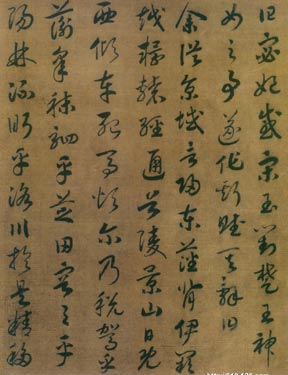 曰宓妃感宋玉對楚王神
女之事遂作斯賦其辭曰
余從京域言歸東藩背伊闕
越轘轅經通谷陵景山日既
西傾車殆馬煩爾乃稅駕乎
蘅皋秣駟乎芝田容与乎
陽林流眄乎洛川於是精移